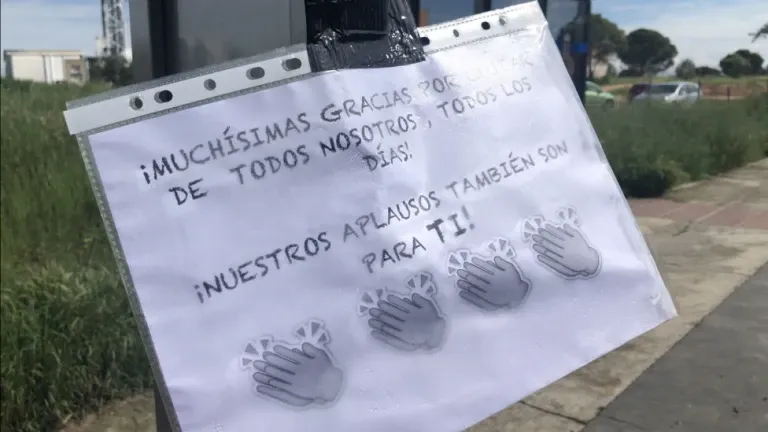 ¡MUCHÍSIMAS GRACIAS POR CUIDAR
DE TODOS NOSOTROS, TODOS LOS
DÍAS!
¡NUESTROS APLAUSOS TAMBIÉN SON
PARA TI!